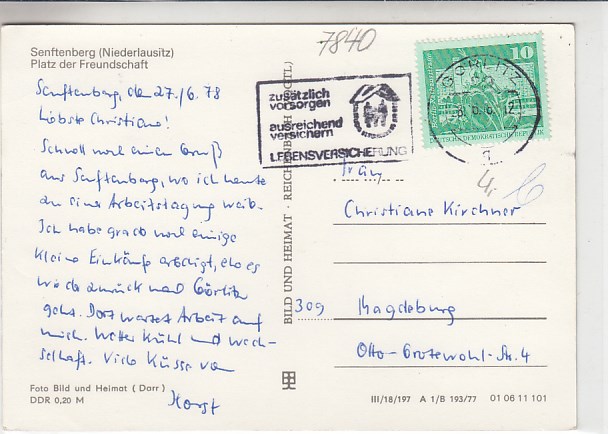 Senftenberg (Niederlausitz)
Platz der Freundschaft
Senftenberg, den 27./6. 78
Liebste Christiane!
Schnell noch einen Gruß
aus Senftenberg, wo ich heute
zu einer Arbeitstagung weile.
Ich habe grad noch einige
kleine Einkäufe erledigt, ehe es
wieder zurück nach Görlitz
geht. Dort wartet Arbeit auf
mich. Wetter kühl und wech-
selhaft. Viele Küsse von
Horst
Foto Bild und Heimat (Darr)
DDR 0,20 M
BILD UND HEIMAT · REICHENBACH (VOGTL)
7840
zusätzlich
vorsorgen
ausreichend
versichern
LEBENSVERSICHERUNG
GÖRLITZ
10
DEUTSCHE DEMOKRATISCHE REPUBLIK
Christiane Kirchner
309 Magdeburg
Otto-Grotewohl-Str. 4
III/18/197 A 1/B 193/77 01 06 11 101